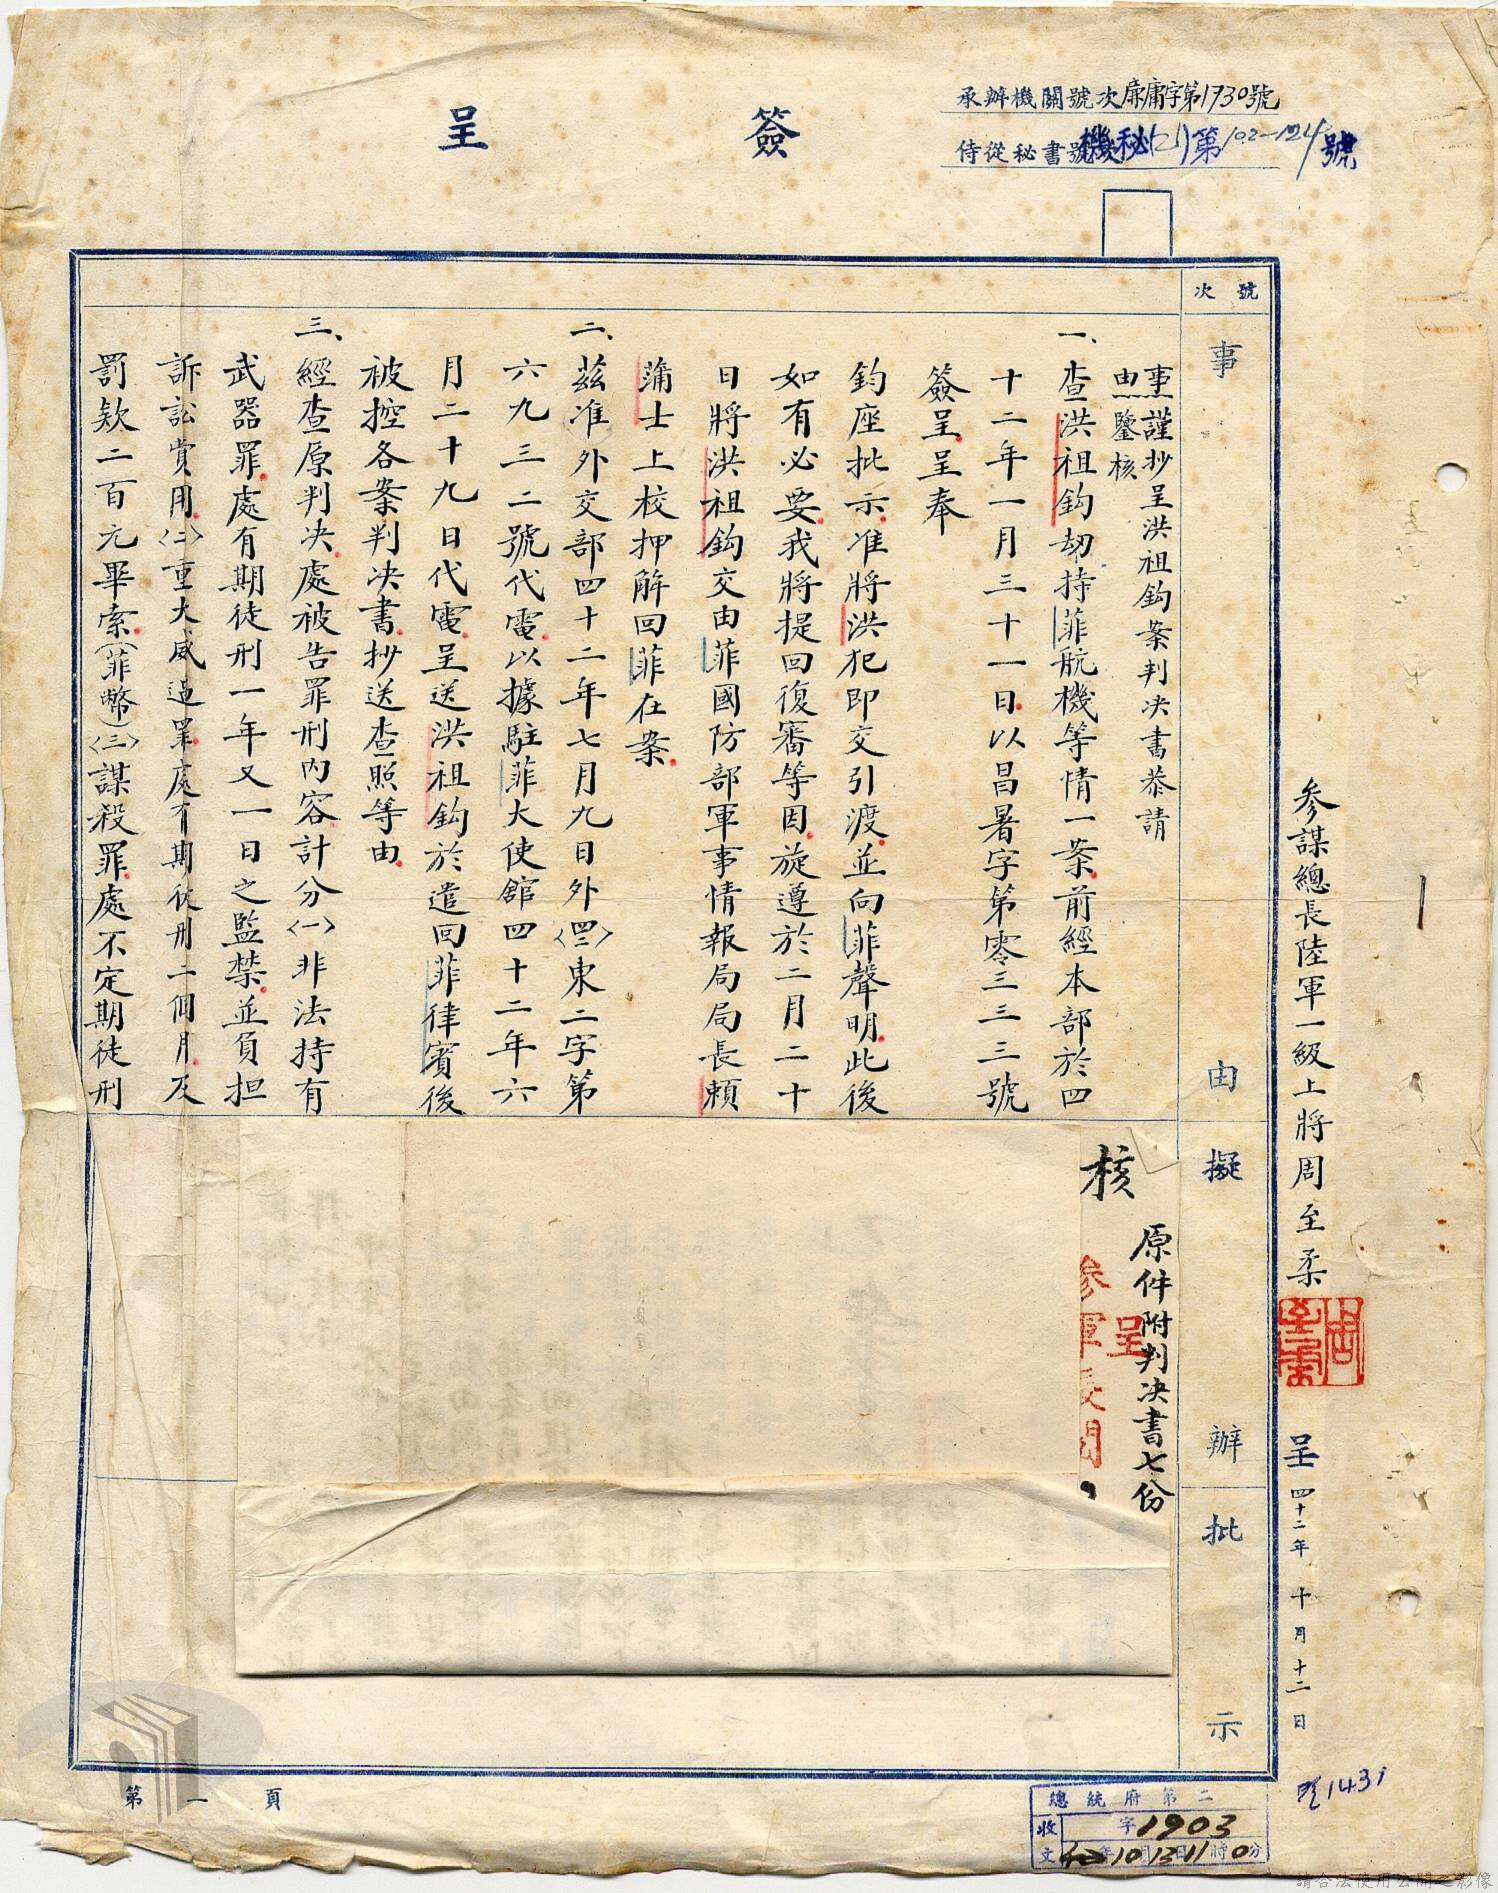 簽呈
承辦機關號次廉庸字第1730號
侍從秘書號次機秘(二)第102-124號
號次
事由
擬辦
批示
事由:謹抄呈洪祖鈎案判決書恭請
鑒核
一、查洪祖鈎刼持菲航機等情一案前經本部於四
十二年一月三十一日以昌暑字第零三三三號
簽呈呈奉
鈞座批示准將洪犯即交引渡並向菲聲明此後
如有必要我將提回復審等因旋遵於二月二十
日將洪祖鈎交由菲國防部軍事情報局局長賴
蒲士上校押解回菲在案
二、茲准外交部四十二年七月九日外〈四二〉東二字第
六九三二號代電以據駐菲大使館四十二年六
月二十九日代電呈送洪祖鈎於遣回菲律賓後
被控各案判决書抄送查照等由
三、經查原判决處被告罪刑內容計分〈一〉非法持有
武器罪處有期徒刑一年又一日之監禁並負担
訴訟費用〈二〉重大威逼罪處有期徒刑二個月及
罰欵二百元畢索(菲幣)〈三〉謀殺罪處不定期徒刑
核
原件附判决書七份
呈
參軍長
參謀總長陸軍一級上將周至柔
周至柔
呈四十二年十月十二日
1431
第一頁
總統府第二
收文
字1903
42年10月13日11時0分
請合法使用公開之影像